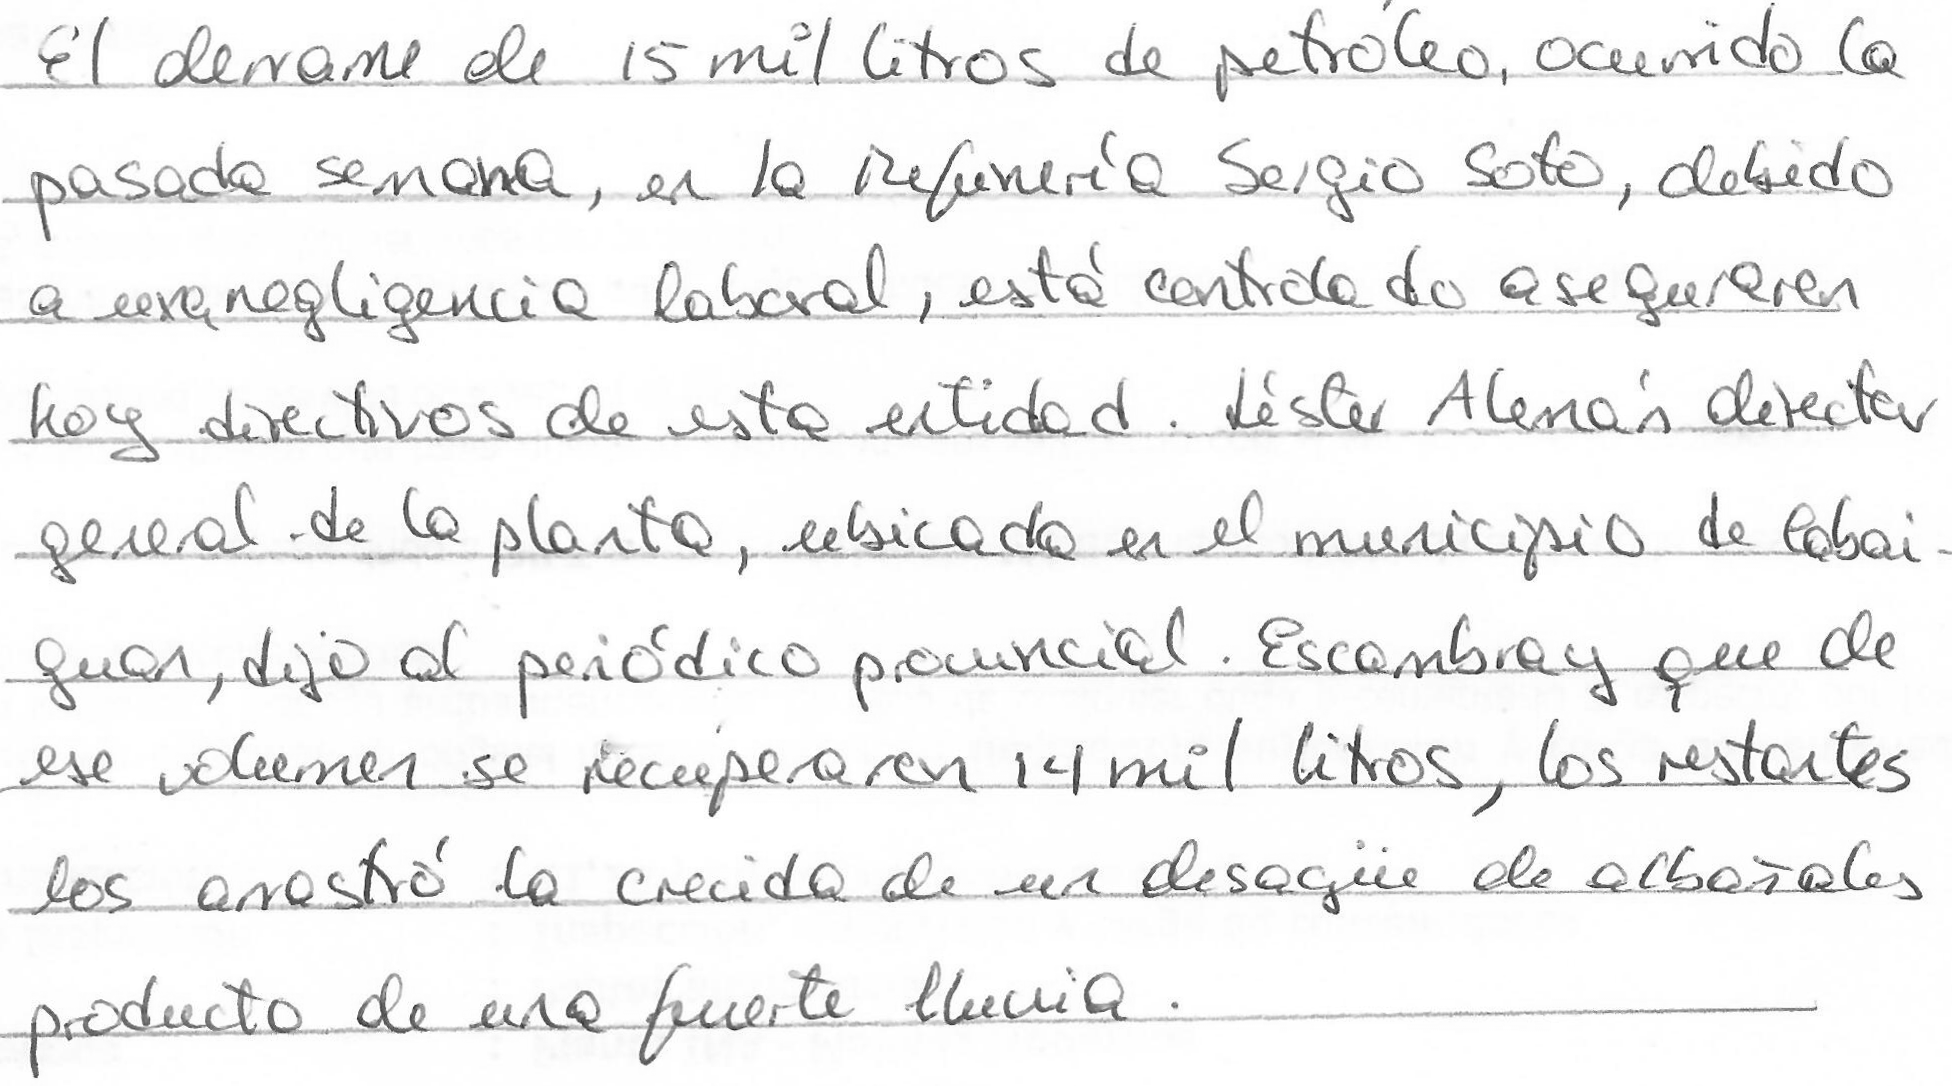 El derrame de 15 mil litros de petróleo, ocurrido la
pasada semana, en la Refinería Sergio Soto, debido
a una negligencia laboral, está controlado aseguraron
hoy directivos de esta entidad. Léster Alemán director
general de la planta, ubicada en el municipio de Cabai-
guan, dijo al periódico provincial. Escambray que de
ese volumen se recuperaron 14 mil litros, los restantes
los arrastró la crecida de un desagüe de albañales
producto de una fuerte lluvia.